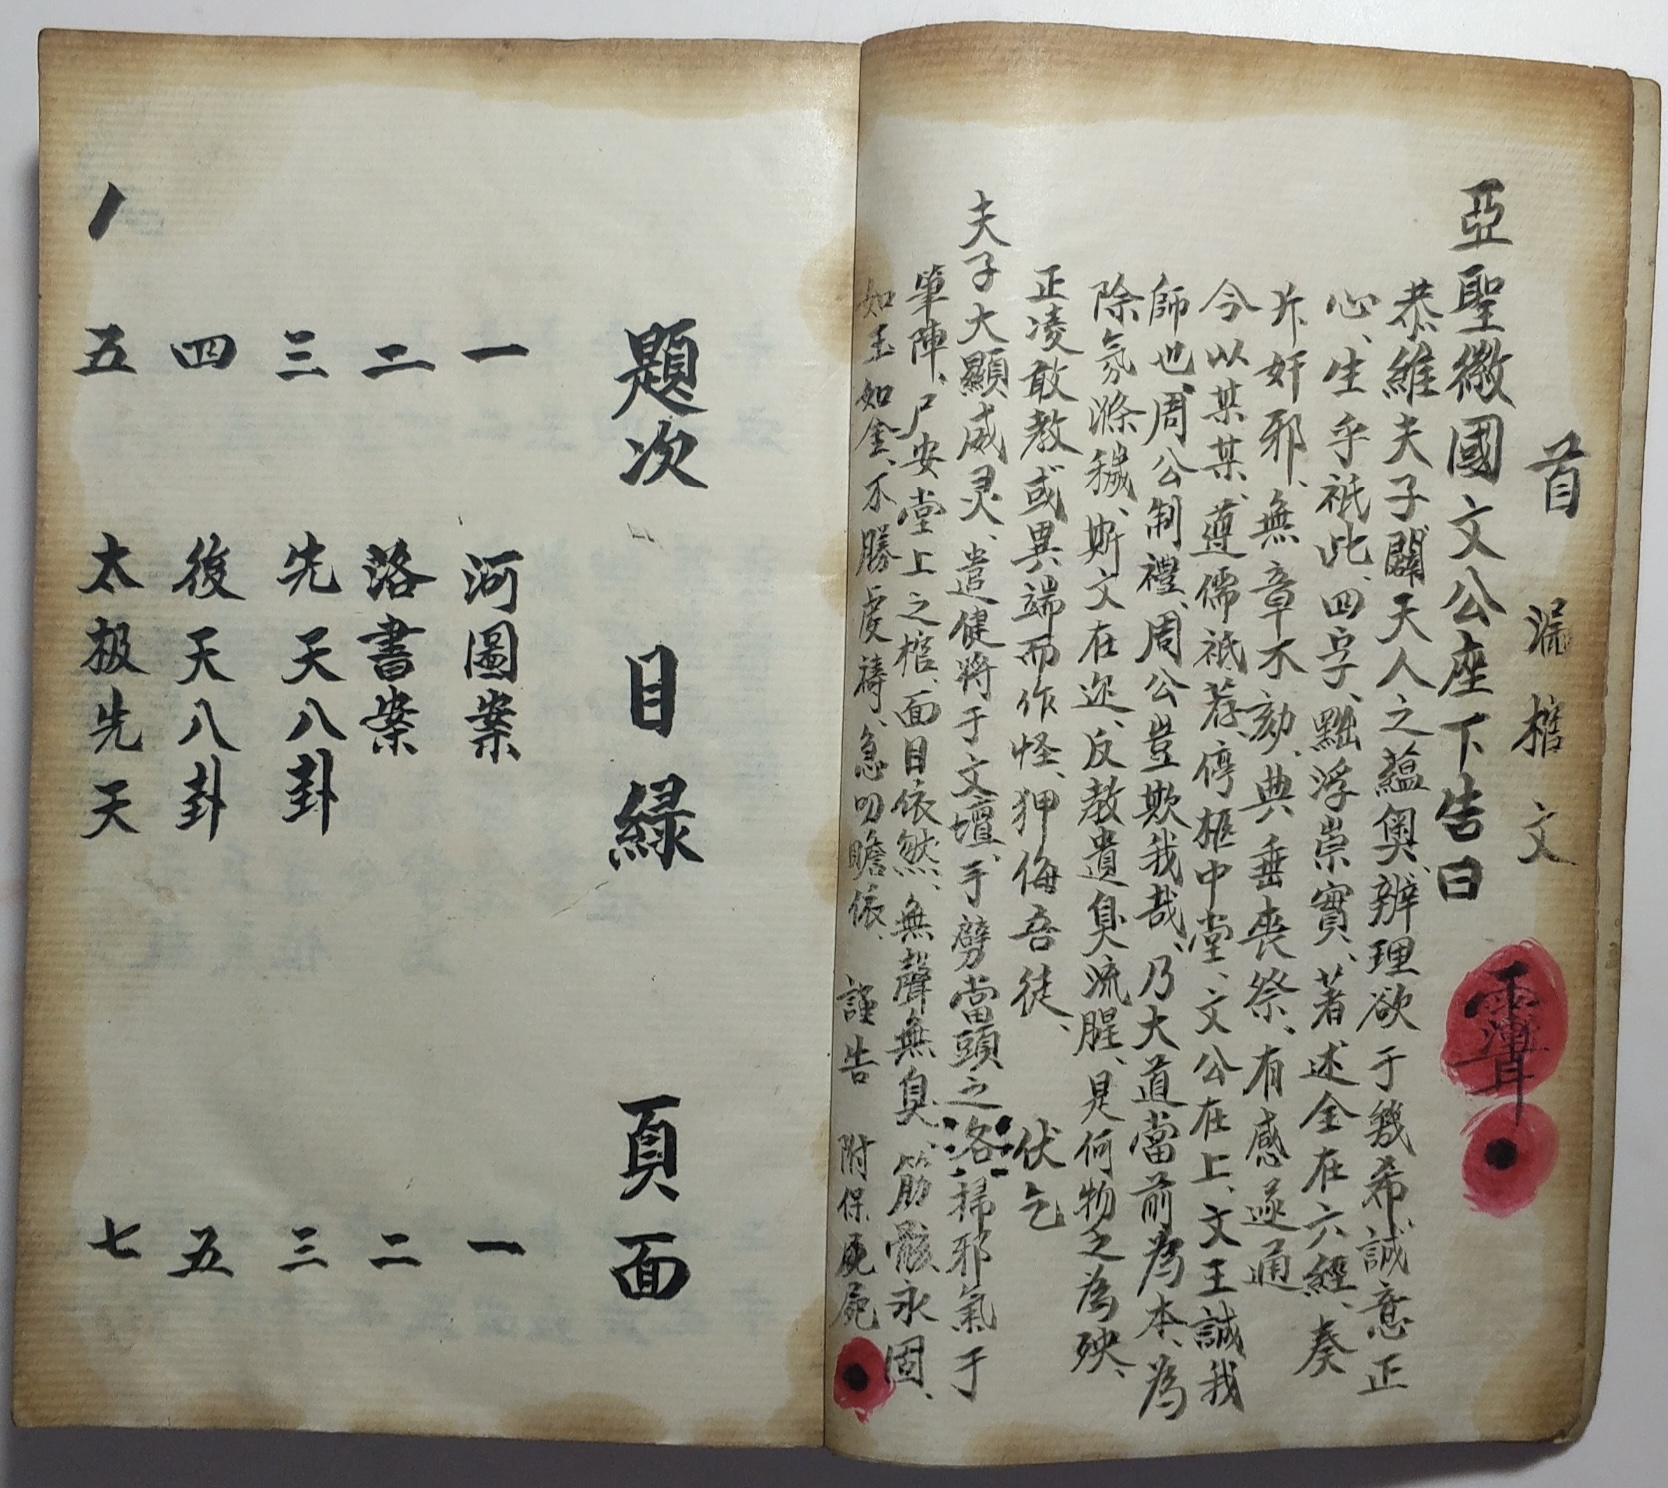 首 漏棺文
亞聖徽國文公座下告曰
恭維夫子闢天人之蘊奧、辨理欲于幾希、誠意正
心、生乎祇此、四字、黜浮崇實、著述全在六經、奏
斥奸邪、無章不劾、典垂喪祭、有感遂通
今以某某、遵儒祇荐、停柩中堂、文公在上、文王誠我
師也、周公制禮、周公豈欺我哉、乃大道當前為本、為
除氛滌穢、斯文在迩、反教遺臭流腥、是何物之為殃、
正凌敢教或異端而作怪、狎侮吾徒、 伏乞
夫子大顯威灵、遣健將于文壇、手劈當頭之洛、掃邪氣于
筆陣、尸安堂上之棺、面目依然、無聲無臭、筋骸永固、
如玉如金、不勝虔禱、急叨瞻依、 謹告 附保屍
題次 目録 頁面
一 河圖案 一
二 洛書案 二
三 先天八卦 三
四 後天八卦 五
五 太极先天 七